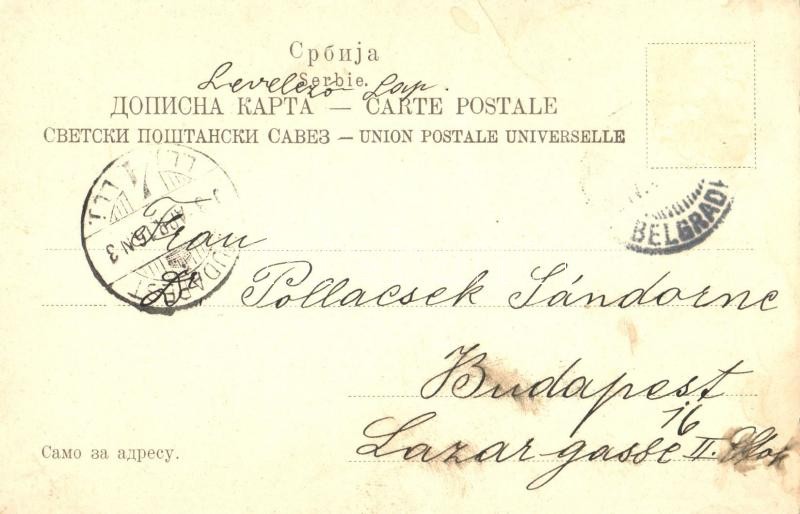 Србија
Serbie.
Levelező Lap.
ДОПИСНА КАРТА — CARTE POSTALE
СВЕТСКИ ПОШТАНСКИ САВЕЗ — UNION POSTALE UNIVERSELLE
BELGRADE
BUDAPEST
Frau
Dr Pollacsek Sándorne
Budapest
16
Lazargasse II. Stok
Само за адресу.